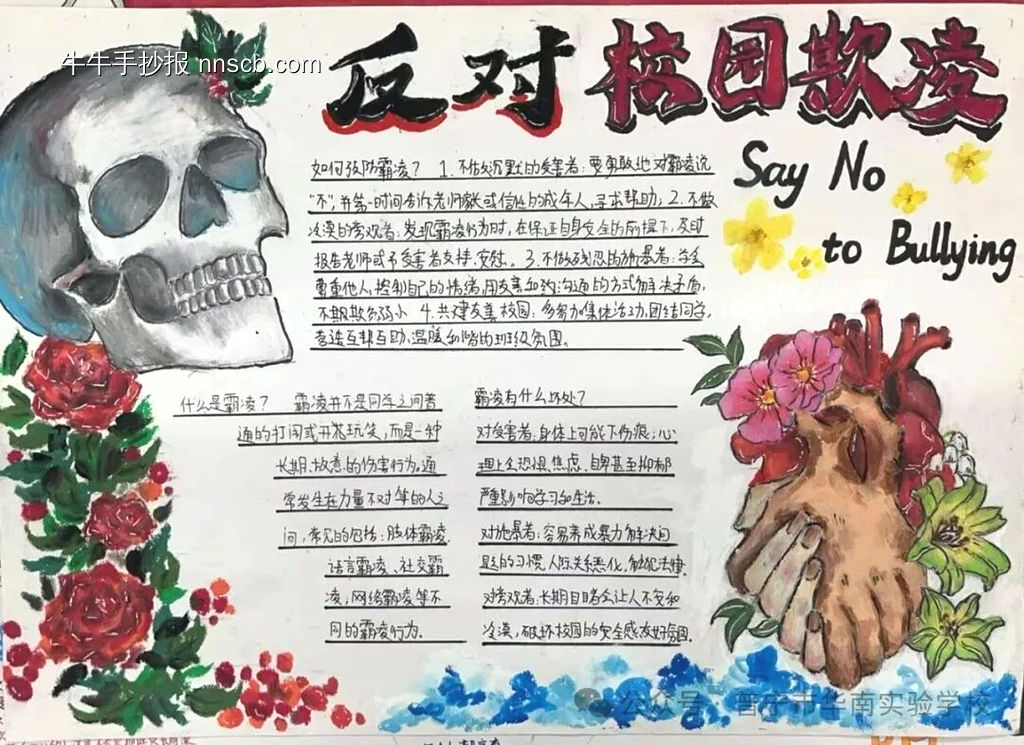 牛牛手抄报 nnscb.com
反对校园欺凌
Say No
to Bullying
如何预防霸凌？ 1.不做沉默的受害者：要勇敢地对霸凌说
“不”，并第一时间告诉老师家长或信任的成年人，寻求帮助；2.不做
冷漠的旁观者：发现霸凌行为时，在保证自身安全的前提下，及时
报告老师或予受害者支持、安慰。3.不做残忍的施暴者：学会
尊重他人，控制自己的情绪，用友善和沟通的方式解决矛盾，
不欺负弱小 4.共建友善校园：多参加集体活动，团结同学，
营造互帮互助、温暖和谐的班级氛围。
什么是霸凌？ 霸凌并不是同学之间普
通的打闹或开怀玩笑，而是一种
长期、故意的伤害行为，通
常发生在力量不对等的人之
间，常见的包括：肢体霸凌
语言霸凌、社交霸
凌，网络霸凌等不
同的霸凌行为.
霸凌有什么坏处？
对受害者：身体上可能下伤痕；心
理上会恐惧、焦虑、自卑甚至抑郁
严重影响学习和生活.
对施暴者：容易养成暴力解决问
题的习惯，人际关系恶化，触犯法律.
对旁观者：长期目睹会让人不安和
冷漠，破坏校园的安全感、友好氛围.
公众号 · 普宁市华南实验学校